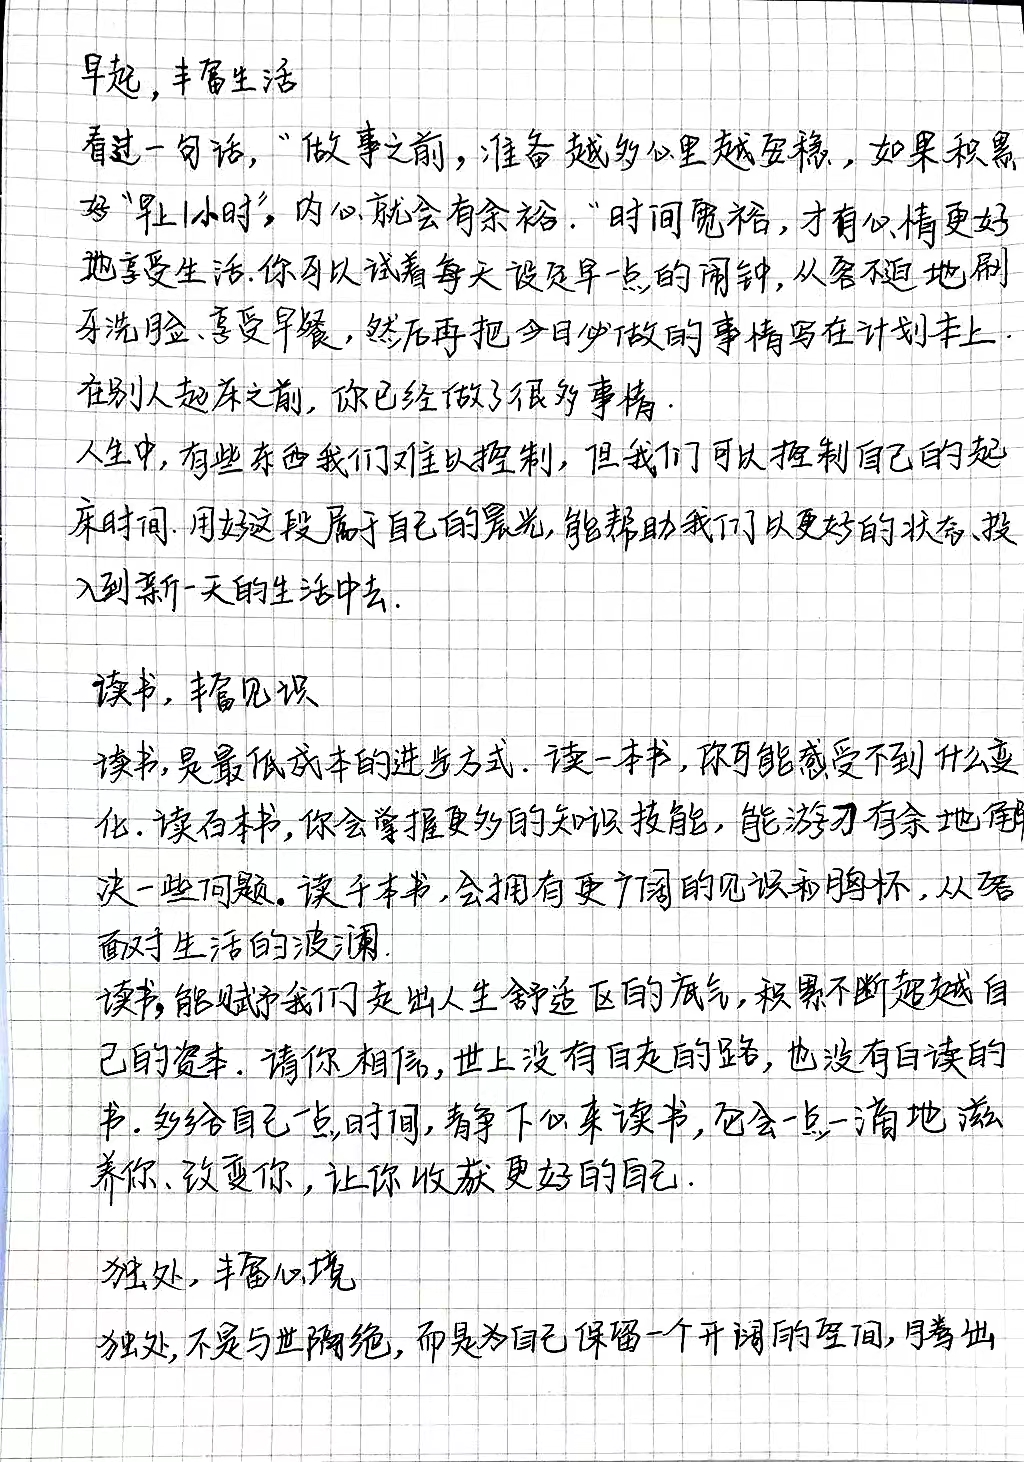 早起，丰富生活
看过一句话，“做事之前，准备越多心里越安稳，如果积累
好“早上1小时”，内心就会有余裕.“时间宽裕，才有心情更好
地享受生活.你可以试着每天设定早一点的闹钟，从容不迫地刷
牙洗脸、享受早餐，然后再把今日必做的事情写在计划本上.
在别人起床之前，你已经做了很多事情.
人生中，有些东西我们难以控制，但我们可以控制自己的起
床时间.用好这段属于自己的晨光，能帮助我们以更好的状态、投
入到新一天的生活中去.
读书，丰富见识
读书，是最低成本的进步方式.读一本书，你可能感受不到什么变
化.读百本书，你会掌握更多的知识技能，能游刃有余地解
决一些问题。读千本书，会拥有更广阔的见识和胸怀，从容
面对生活的波澜.
读书，能赋予我们走出人生舒适区的底气，积累不断超越自
己的资本.请你相信，世上没有白走的路，也没有白读的
书.多给自己一点时间，静下心来读书，它会一点一滴地滋
养你、改变你，让你收获更好的自己.
独处，丰富心境
独处，不是与世隔绝，而是为自己保留一个开阔的空间，腾出